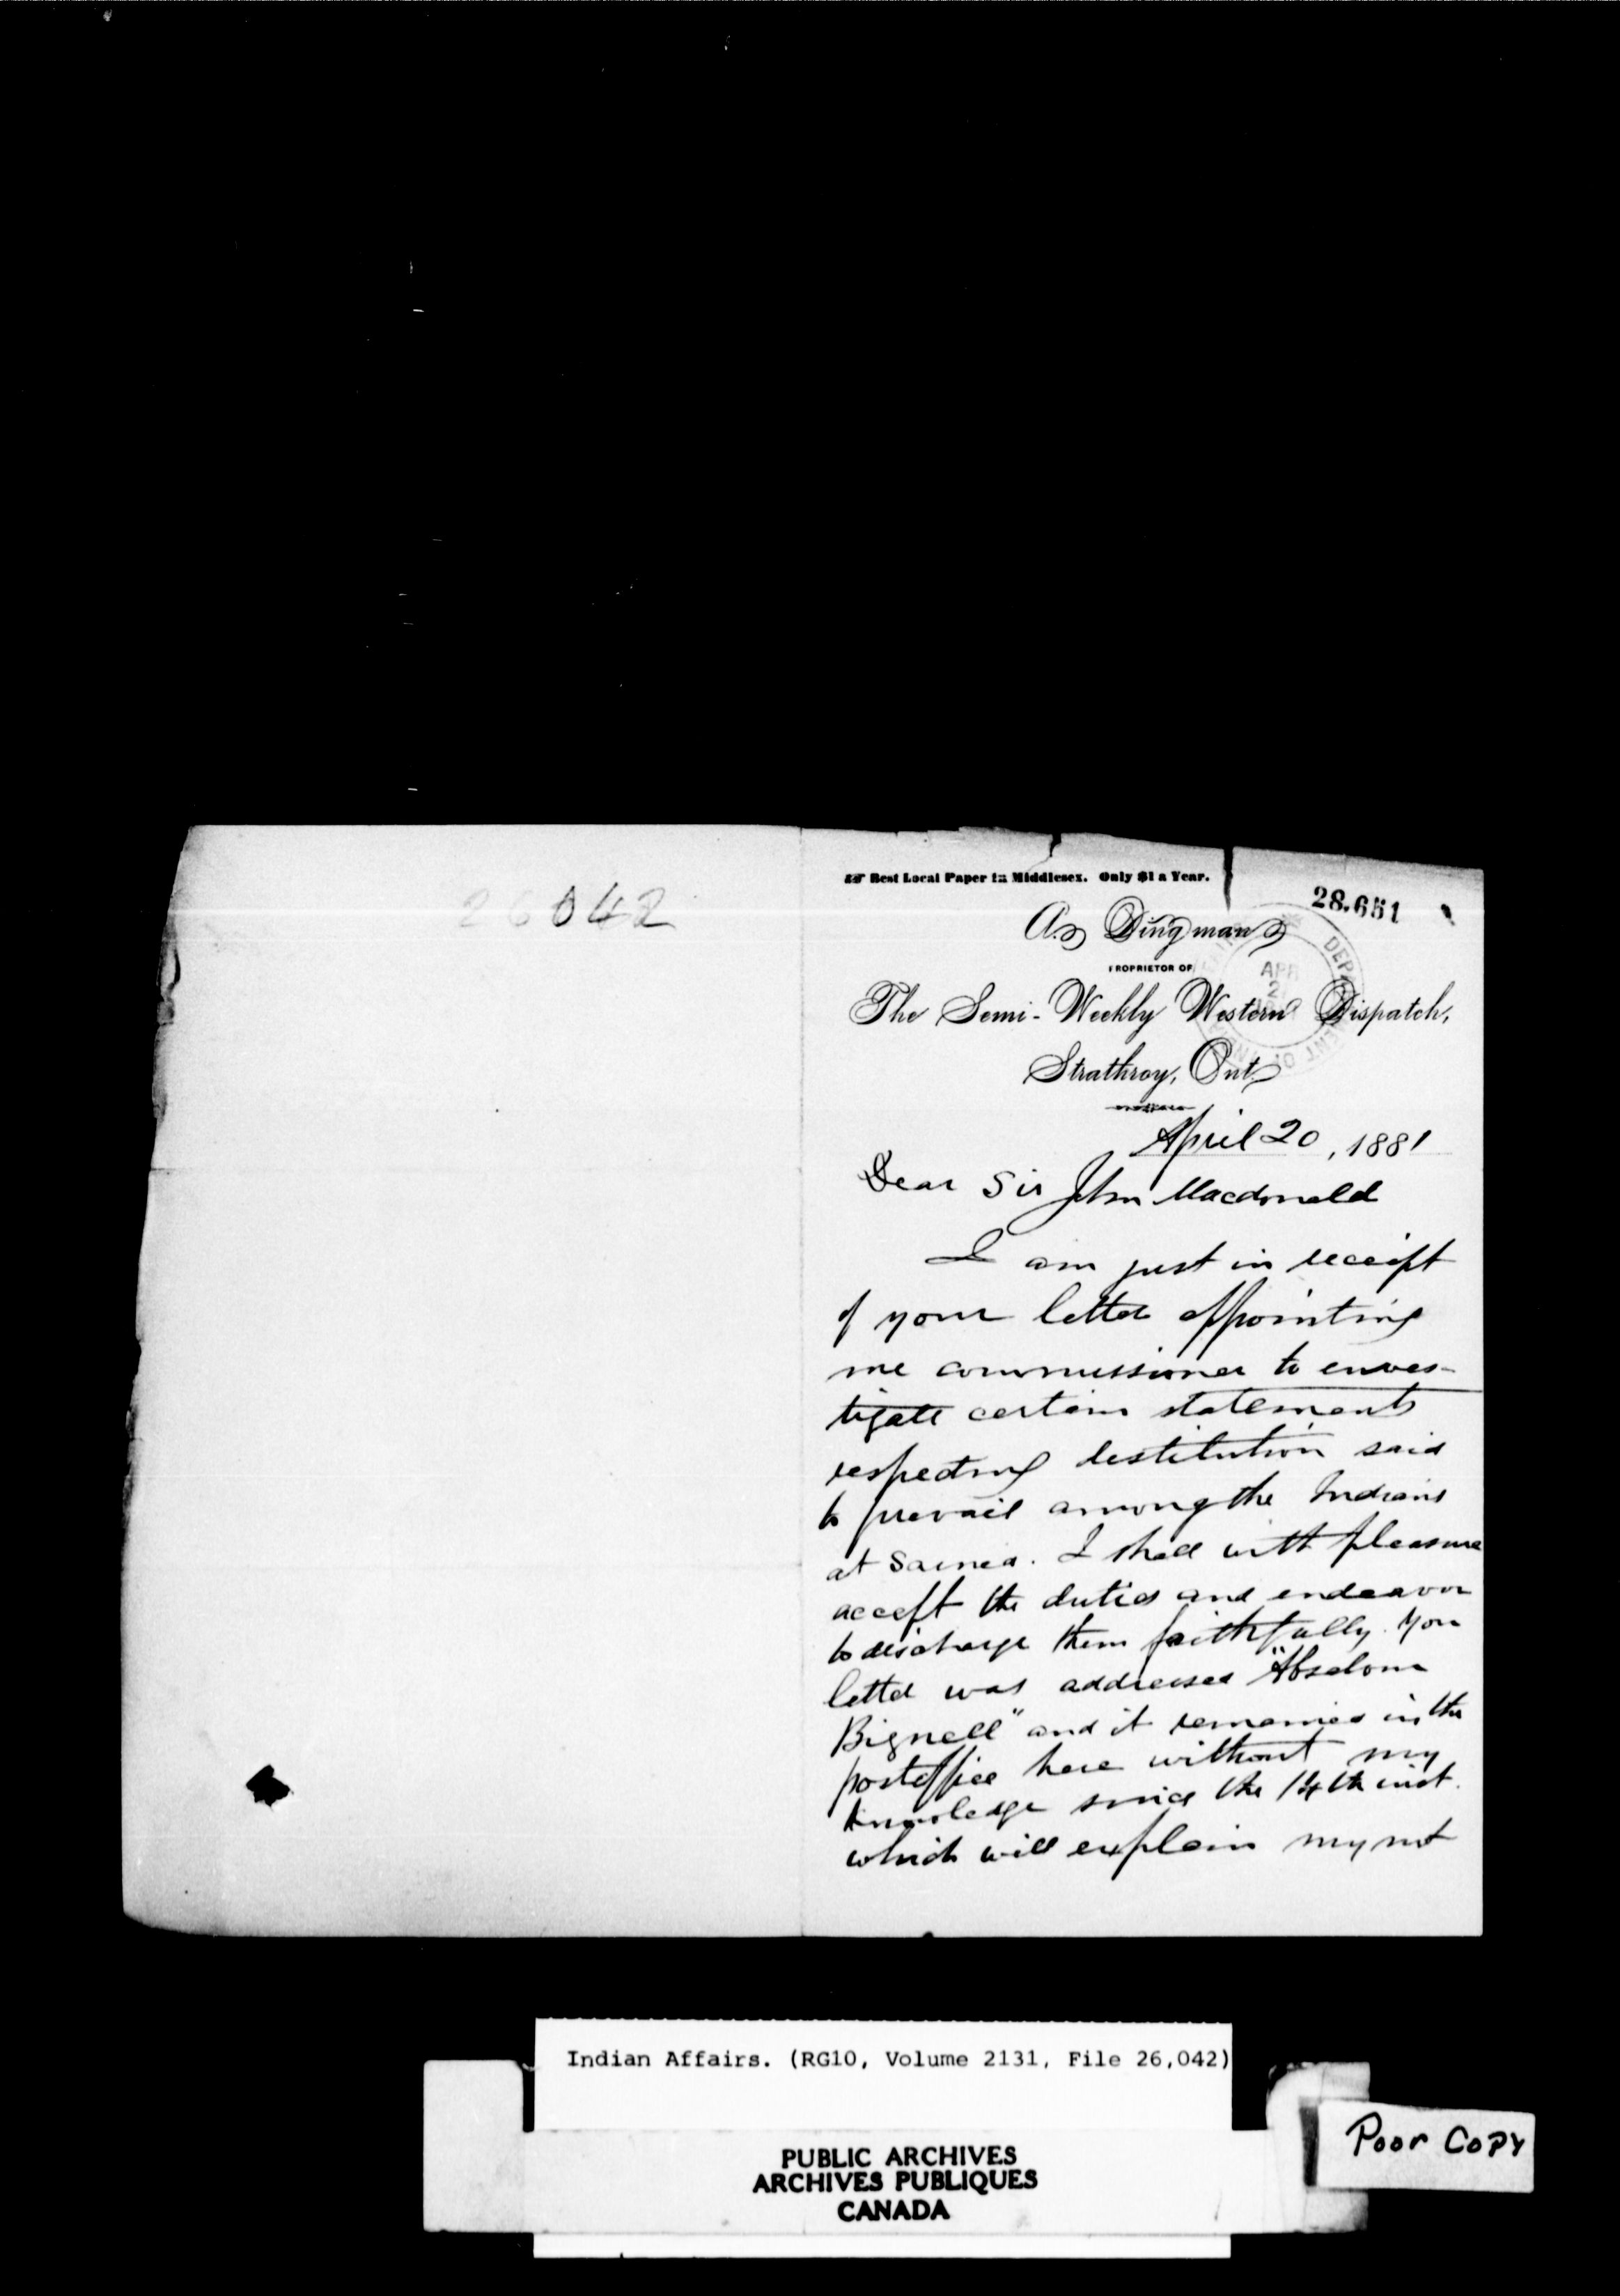 26042
☞ Best Local Paper in Middlesex. Only $1 a Year.
28.651
A. Dingman
PROPRIETOR OF
The Semi-Weekly Western Dispatch,
Strathroy, Ont.
DEPA
APR
2
April 20, 1881
Dear Sir John Macdonald
I am just in receipt
of your letter appointing
me commissioner to enves-
tigate certain statements
respecting destitution said
to prevail among the Indians
at Sarnea. I shall with pleasure
accept the duties and endeavor
to discharge them faithfully. Your
letter was addressed "Absalom
Bignell" and it remained in the
postoffice here without my
knowledge since the 14th inst.
which will explain my not
Indian Affairs. (RG10, Volume 2131, File 26,042)
PUBLIC ARCHIVES
ARCHIVES PUBLIQUES
CANADA
Poor Copy